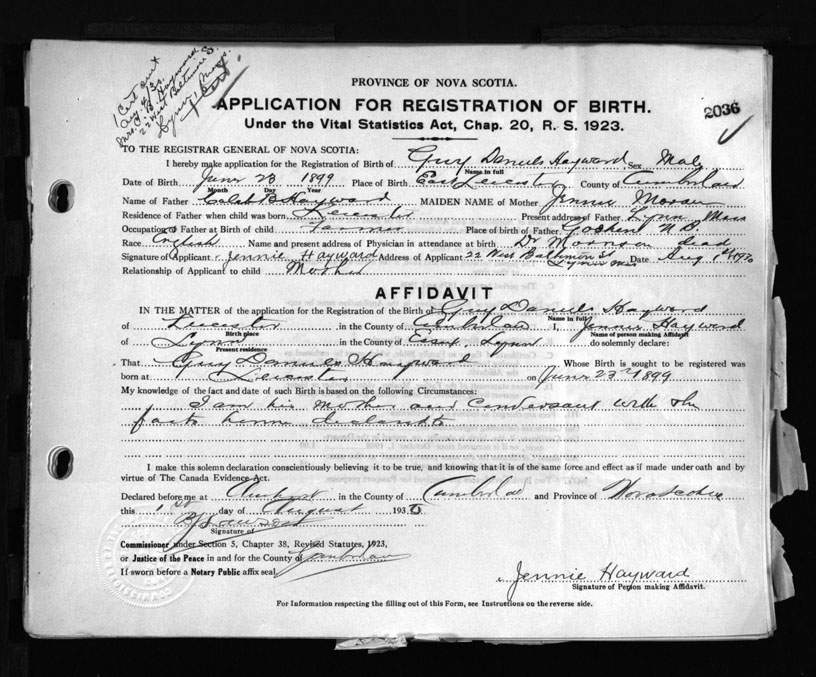 1 Cert sent
Aug 4/30
Mrs. C. B. Hayward
22 West Baltimore S.
Lynn, Mass.
1 Cert.
PROVINCE OF NOVA SCOTIA.
APPLICATION FOR REGISTRATION OF BIRTH.
2036
Under the Vital Statistics Act, Chap. 20, R. S. 1923.
TO THE REGISTRAR GENERAL OF NOVA SCOTIA:
I hereby make application for the Registration of Birth of Guy Daniels Hayward Sex Male
Name in full
Date of Birth June 23 1899 Place of Birth East Leicester County of Cumberland
Month Day Year
Name of Father Caleb B Hayward MAIDEN NAME of Mother Jennie
Residence of Father when child was born Leicester Present address of Father Lynn Mass
Occupation of Father at Birth of child Farmer Place of birth of Father Goshen N B.
Race English Name and present address of Physician in attendance at birth Dr dead
Signature of Applicant Jennie Hayward Address of Applicant 22 West Baltimore St Lynn Mass Date Aug 1st 1930
Relationship of Applicant to child Mother
AFFIDAVIT
IN THE MATTER of the application for the Registration of the Birth of Guy Daniels Hayward
Name in full
of Leicester in the County of Cumberland I, Jennie Hayward
Birth place Name of person making Affidavit
of Lynn in the County of Essex, Lynn do solemnly declare:
Present residence
That Guy Daniels Hayward Whose Birth is sought to be registered was
born at Leicester on June 23rd 1899
My knowledge of the fact and date of such Birth is based on the following Circumstances:
I am his mother and conversant with the
facts herein declared to
I make this solemn declaration conscientiously believing it to be true, and knowing that it is of the same force and effect as if made under oath and by
virtue of The Canada Evidence Act.
Declared before me at Amherst in the County of Cumberland and Province of Nova Scotia
this 1st day of August 1930
Signature of
Commissioner under Section 5, Chapter 38, Revised Statutes, 1923,
or Justice of the Peace in and for the County of Cumberland
If sworn before a Notary Public affix seal.
Jennie Hayward
Signature of Person making Affidavit.
For Information respecting the filling out of this Form, see Instructions on the reverse side.